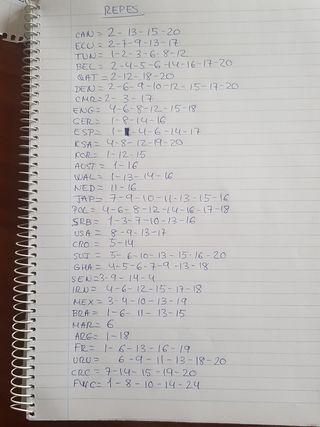 REPES
CAN = 2-13-15-20
ECU = 2-7-9-13-17
TUN = 1-2-3-6-8-12
BEL = 2-4-5-6-14-16-17-20
QAT = 2-12-18-20
DEN = 2-6-9-10-12-15-17-20
CMR = 2-3-17
ENG = 4-6-8-12-15-18
GER = 1-8-14-16
ESP = 1-4-6-14-17
KSA = 4-8-12-19-20
POR = 1-12-15
AUST = 1-16
WAL = 1-13-14-16
NED = 11-16
JAP = 7-9-10-11-13-15-16
POL = 4-6-8-12-14-16-17-18
SRB = 1-3-7-10-13-16
USA = 8-9-13-17
CRO = 5-14
SUI = 5-6-10-13-15-16-20
GHA = 4-5-6-7-9-13-18
SEN = 3-9-14-4
IRN = 4-6-12-15-17-18
MEX = 3-4-10-13-19
BRA = 1-6-11-13-15
MAR = 6
ARG = 1-18
FR = 1-6-13-16-19
URU = 6-9-11-13-18-20
CRC = 7-14-15-19-20
FWC = 1-8-10-14-24